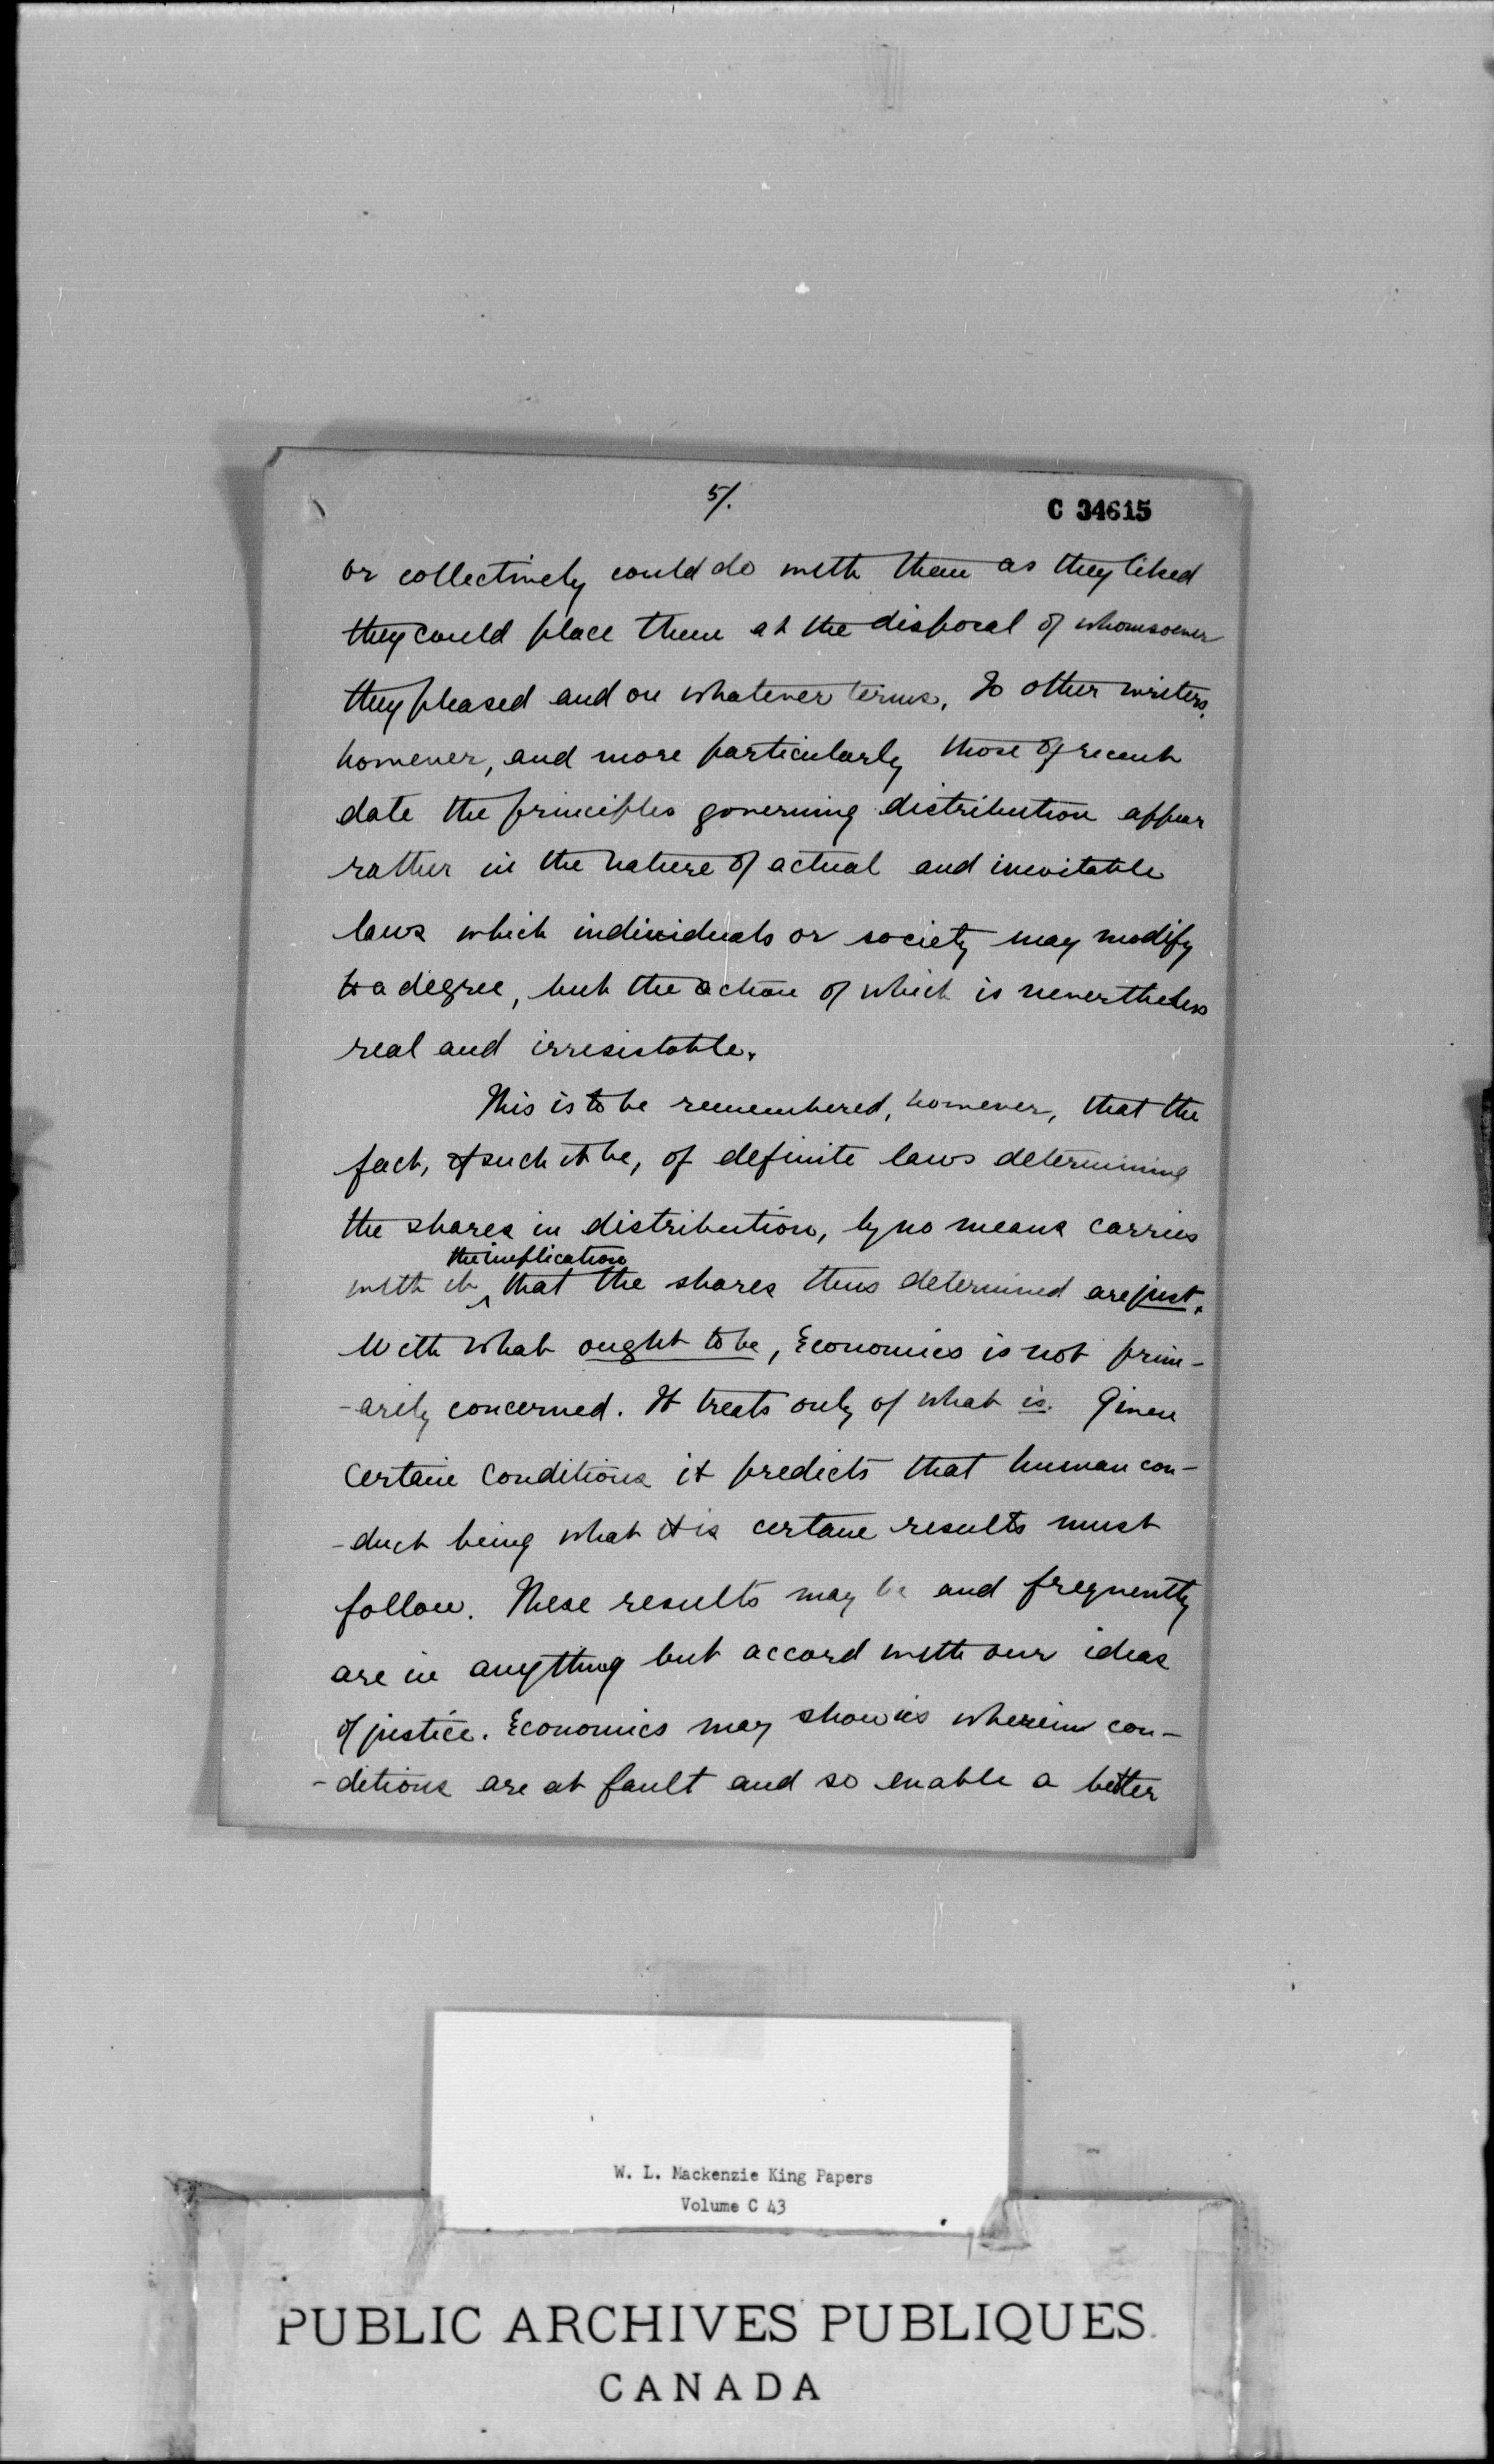 5/.
C 34615
or collectively could do with them as they liked
they could place them at the disposal of whomsoever
they pleased and on whatever terms. To other writers,
however, and more particularly those of recent
date the principles governing distribution appear
rather in the nature of actual and inevitable
laws which individuals or society may modify
to a degree, but the action of which is nevertheless
real and irresistable.
This is to be remembered, however, that the
fact, if such it be, of definite laws determining
the shares in distribution, by no means carries
the implication
with it ‸ that the shares thus determined are just.
With what ought to be, Economics is not prim-
-arily concerned. It treats only of what is. Given
certain conditions it predicts that human con-
-duct being what it is certain results must
follow. These results may be and frequently
are in anything but accord with our ideas
of justice. Economics may show us wherein con-
-ditions are at fault and so enable a better
W. L. Mackenzie King Papers
Volume C 43
PUBLIC ARCHIVES PUBLIQUES
CANADA